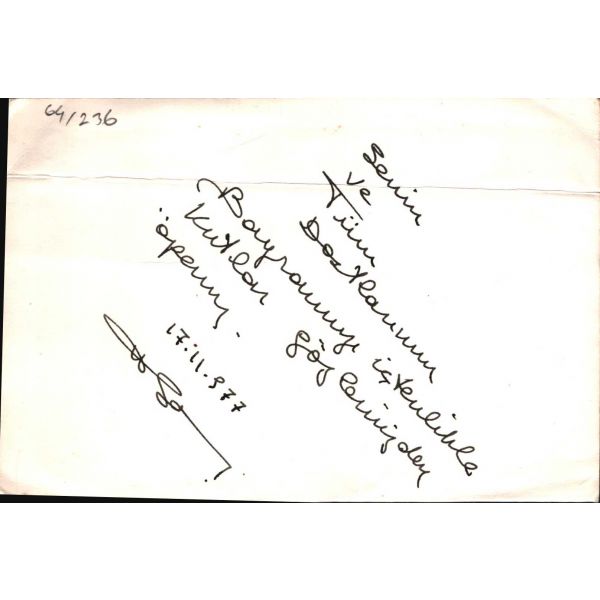 64/236
Senin
ve
Tüm
Dostlarının
Bayramınızı içtenlikle
Kutlar gözlerinizden
öperim.
17.11.977